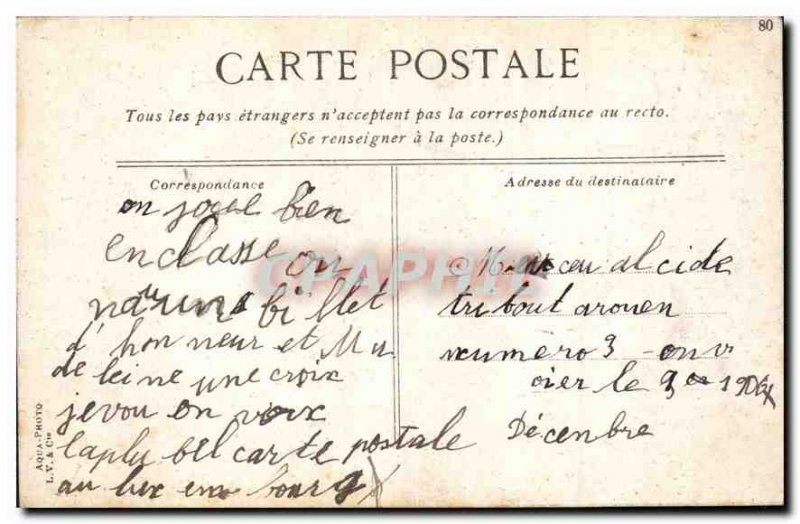 80
CARTE POSTALE
Tous les pays étrangers n'acceptent pas la correspondance au recto.
(Se renseigner à la poste.)
Correspondance
on joue bien
en classe on
une billet
d'honneur et Mu
de leine une croix
jevou en voix
la plu bel carte postale
au lux en bourg
Adresse du destinataire
alcide
tribout arouen
numero 3 onv
oier le 9
Décenbre
AQUA-PHOTO
L.V. & Cie